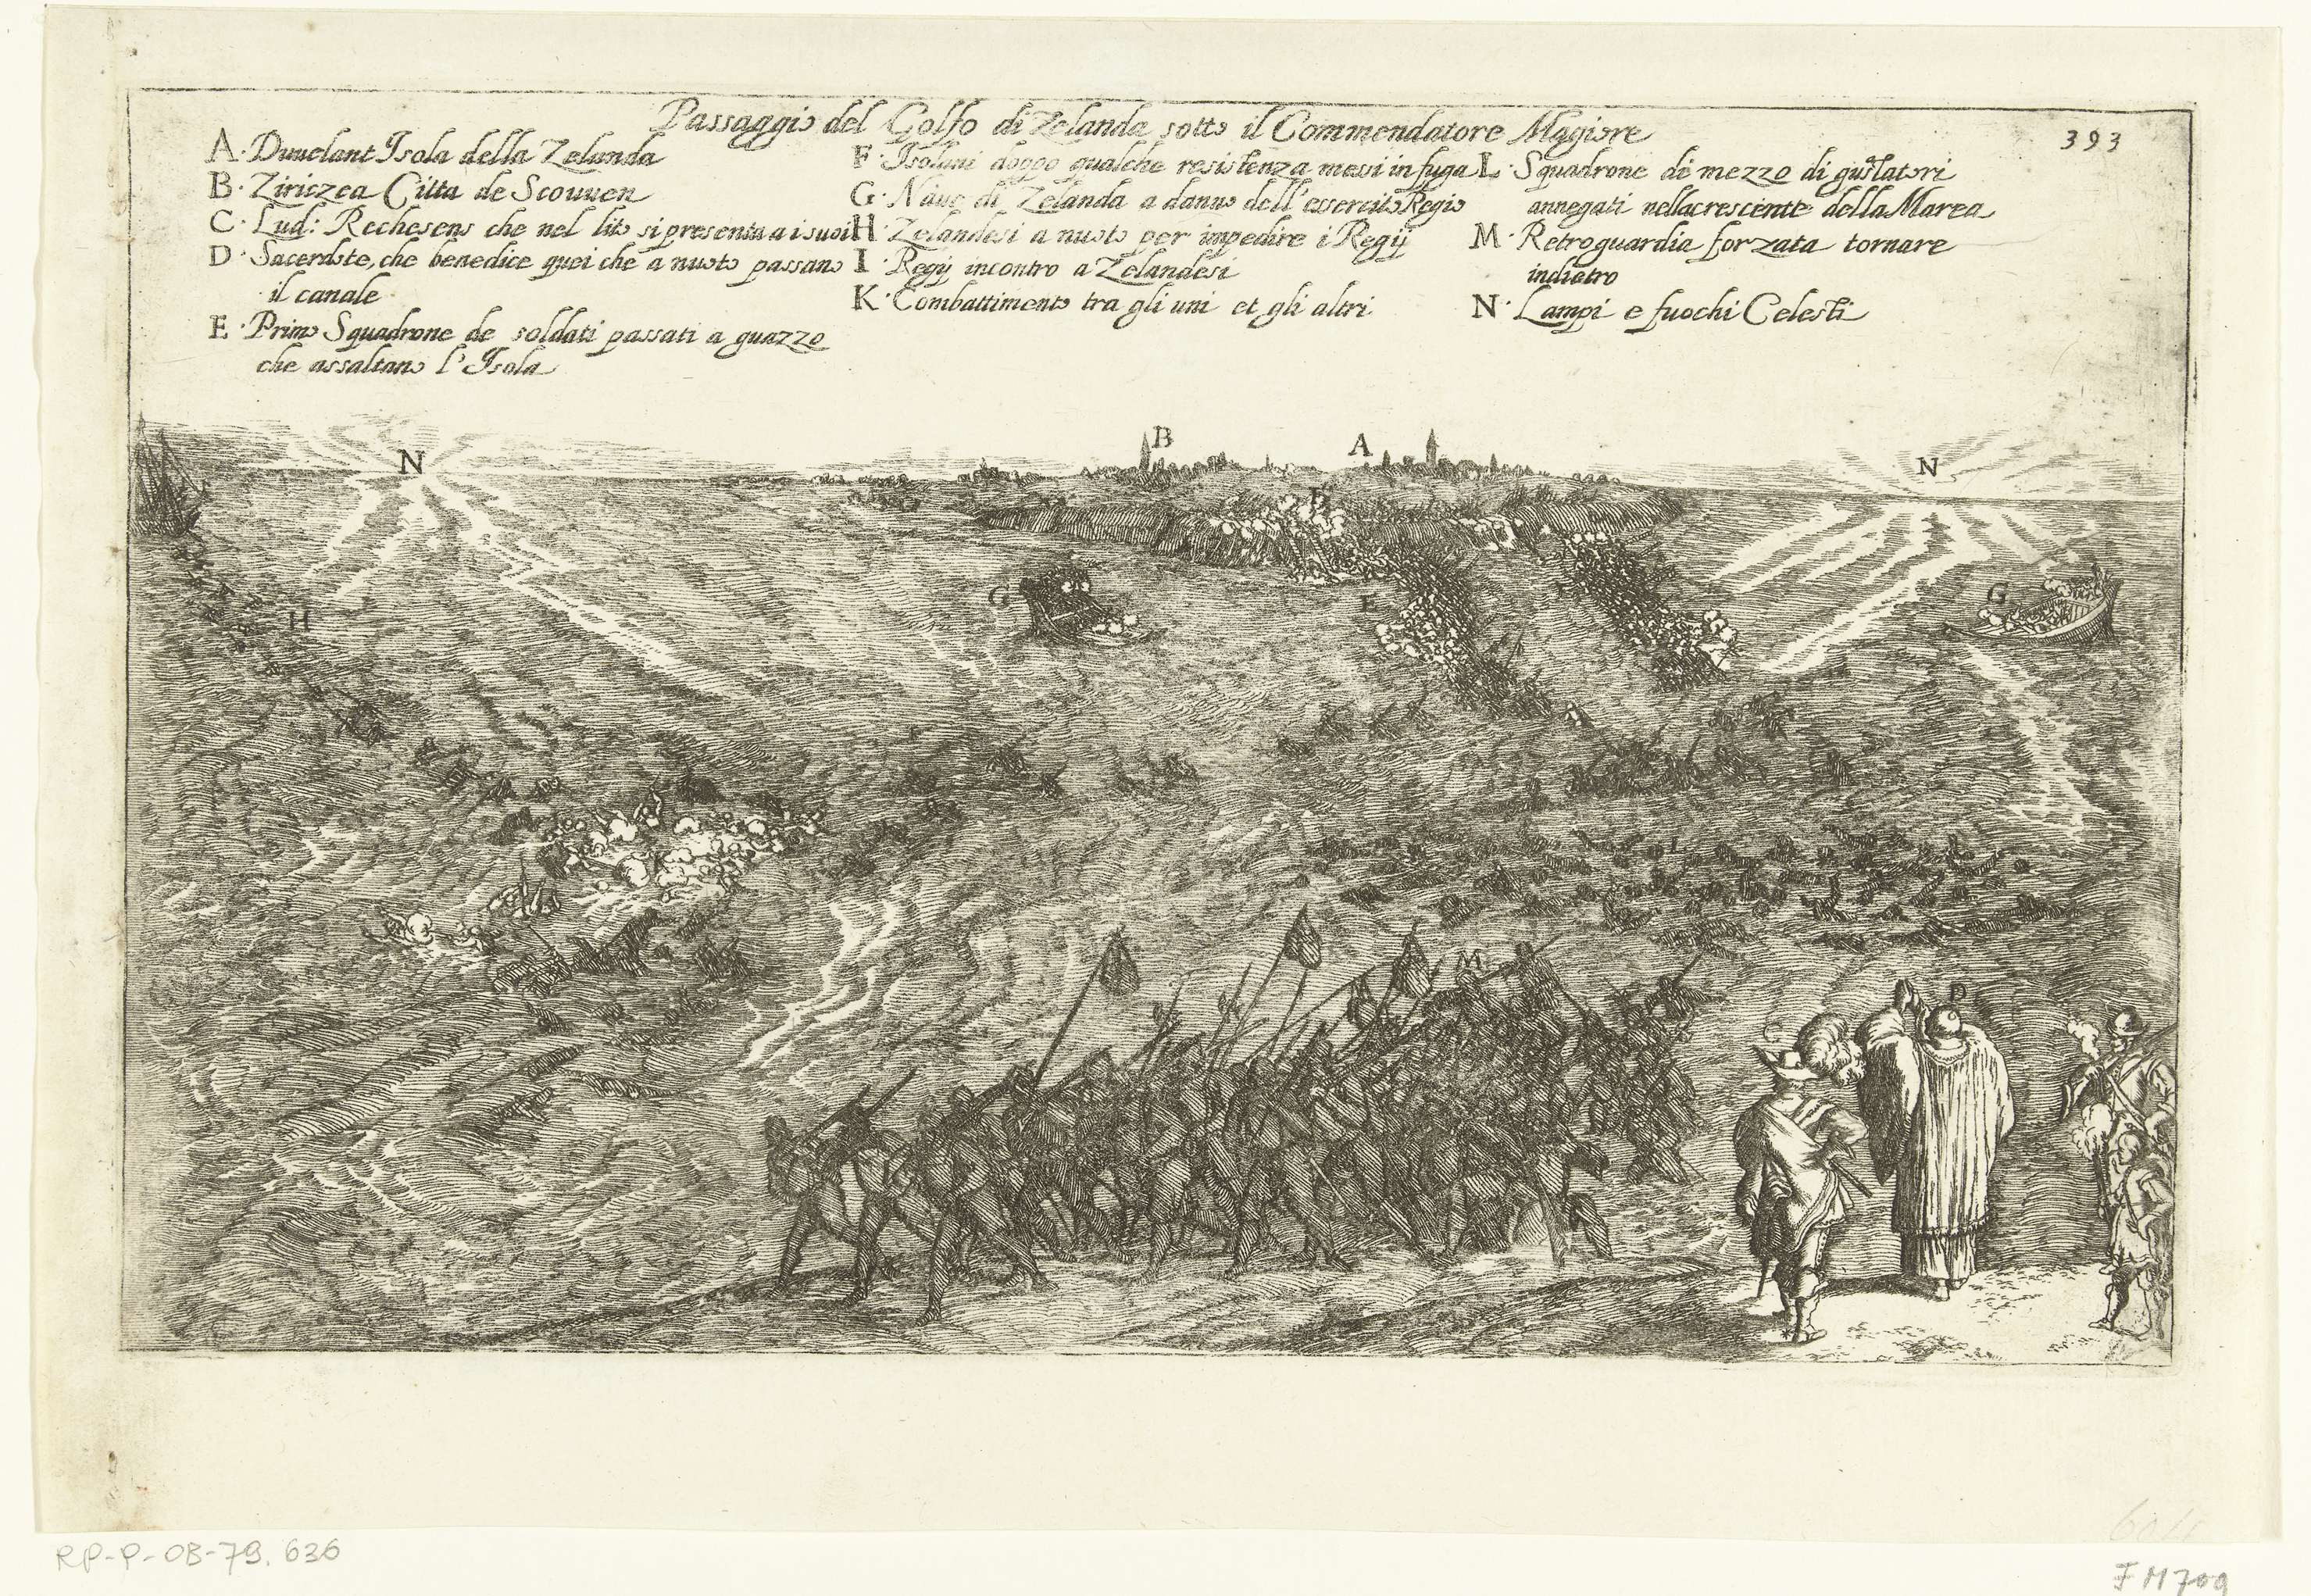 Passaggio del Golfo di Zelanda sotto il Commendatore Magiore
393
A · Duuelant Isola della Zelanda
B · Ziriczea Citta de Scouuen
C · Lud: Rechesens che nel lito si presenta a i suoi
D · Sacerdote, che benedice quei che a nuoto passano
il canale
E · Primo Squadrone de soldati passati a guazzo
che assaltano l'Isola
F · Isolani doppo qualche resistenza messi in fuga
G · Naue di Zelanda a danno dell'essercito Regio
H · Zelandesi a nuoto per impedire i Regij
I · Regij incontro a Zelandesi
K · Combattimento tra gli uni et gli altri
L · Squadrone di mezzo di guastatori
annegati nella crescente della Marea
M · Retroguardia forzata tornare
indietro
N · Lampi e fuochi Celesti
N
B
A
N
F
G
E
G
H
K
L
M
D
RP-P-OB-79.636
FM 709